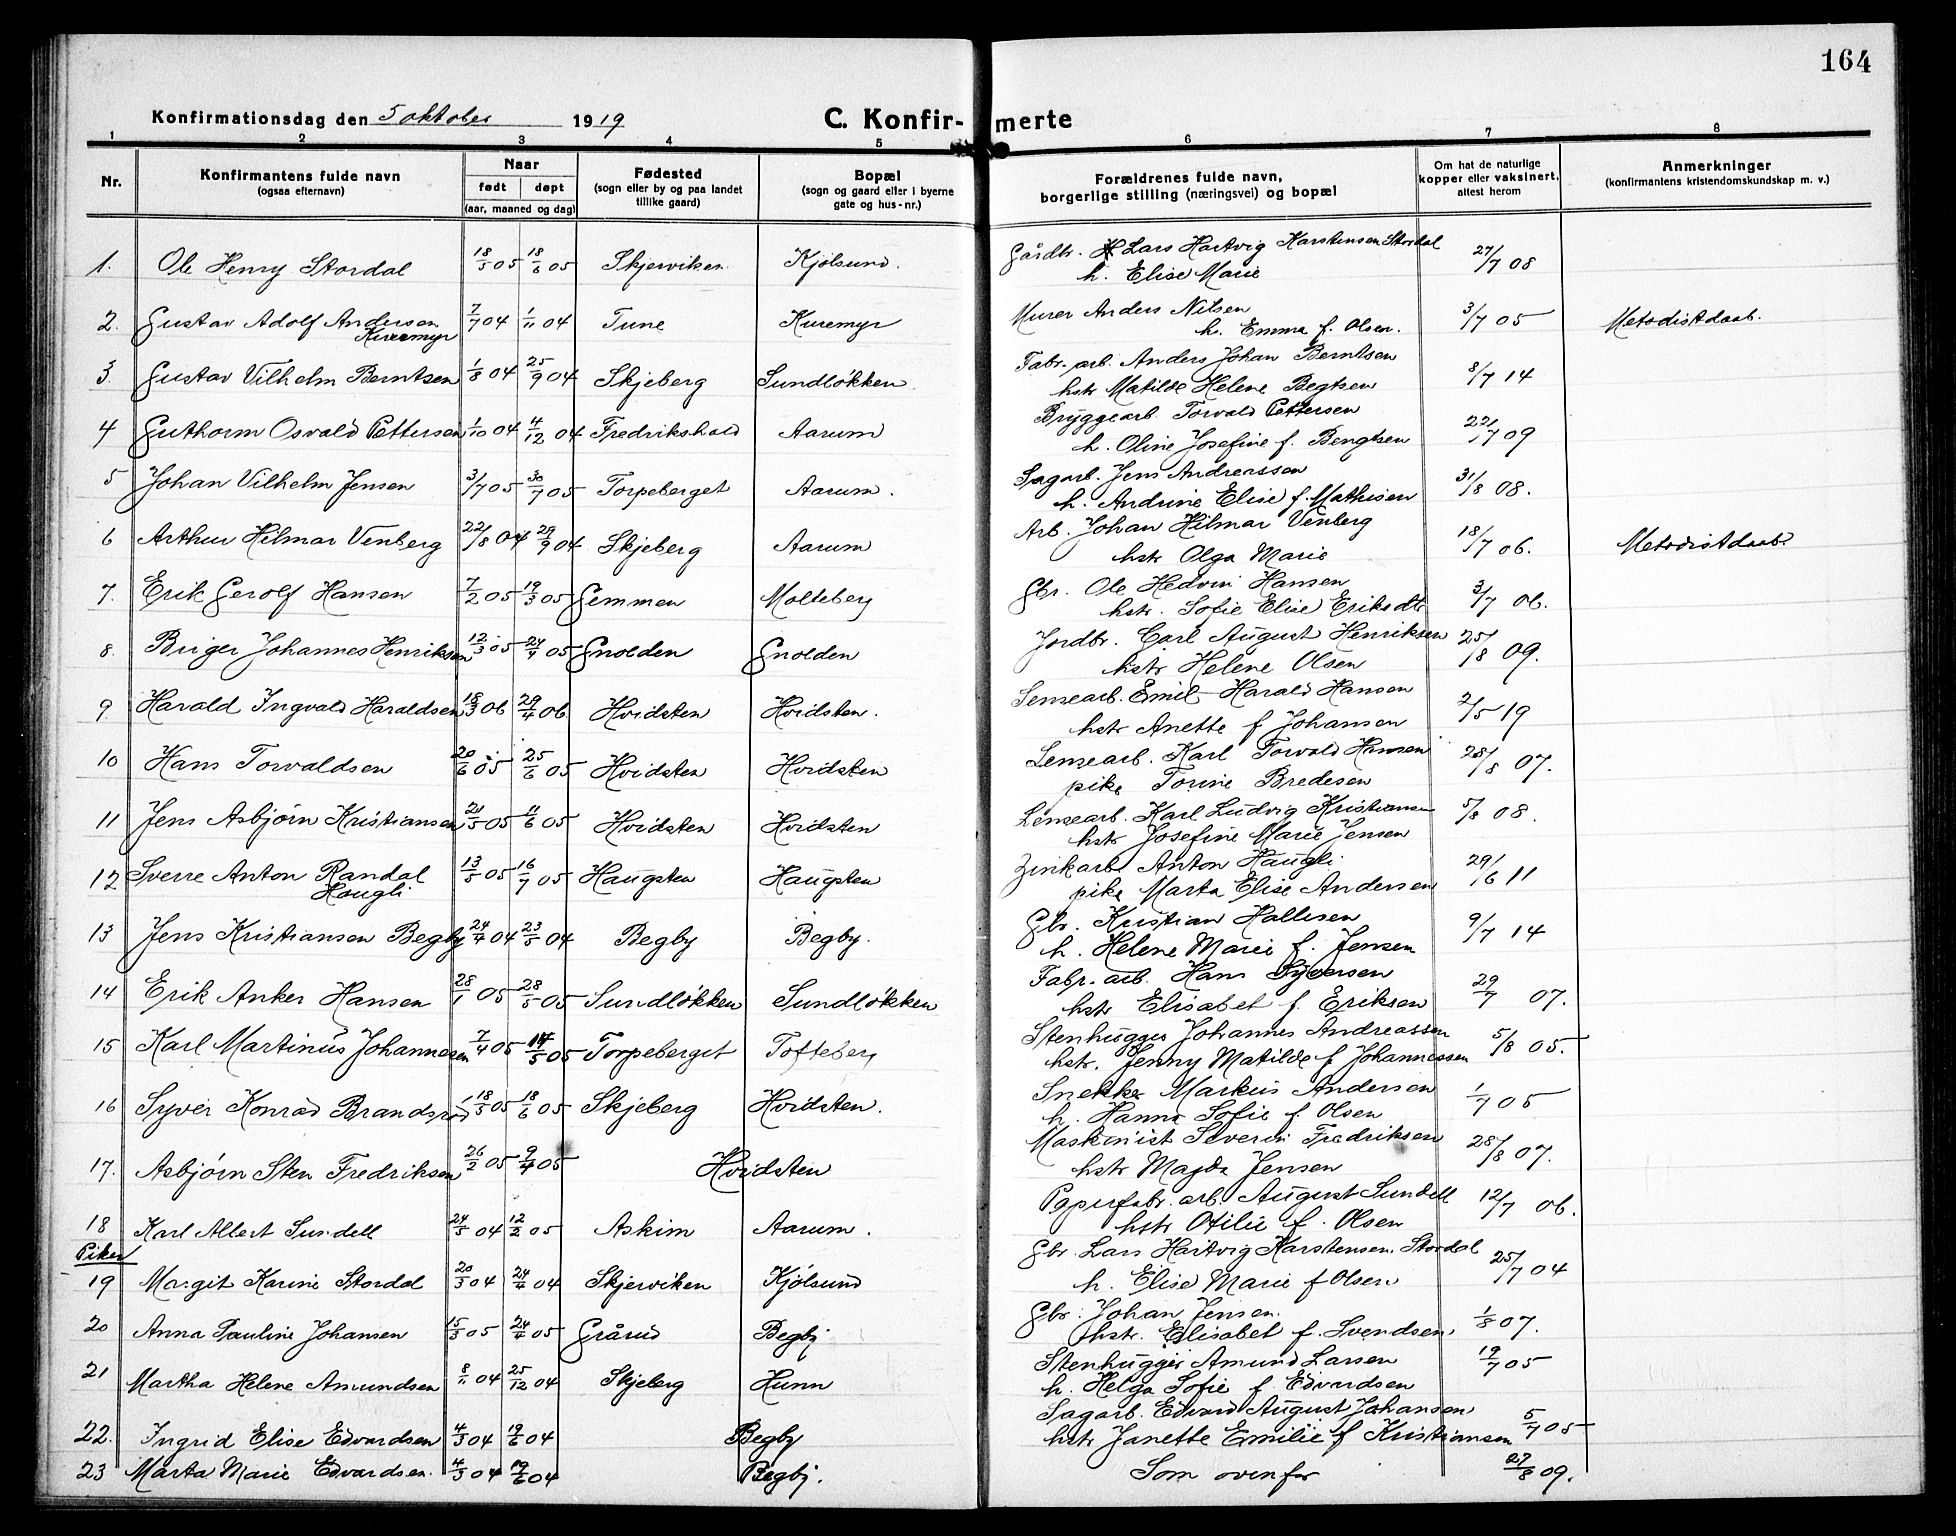 164
Konfirmationsdag den 5 oktober 1919 C. Konfirmerte
1 2 3 4 5 6 7 8
Nr. Konfirmantens fulde navn (ogsaa efternavn) Naar født døpt (aar, maaned og dag) Fødested (sogn eller by og paa landet tillike gaard) Bopæl (sogn og gaard eller i byerne gate og hus-nr.) Forældrenes fulde navn, borgerlige stilling (næringsvei) og bopæl Om hat de naturlige kopper eller vaksinert, attest herom Anmerkninger (konfirmantens kristendomskundskap m. v.)
1. Ole Henry Stordal 18/5 05 18/6 05 Skjerviken Kjølsund. Gårdbr. Lars Hartvig Karstensen Stordal 27/7 08
h. Elise Marie
2. Gustav Adolf Andersen 7/7 04 1/11 04 Tune Kuremyr Murer Anders Nilsen 3/7 05 Metodistdaab.
Kuremyr h. Emma f. Olsen.
3. Gustav Vilhelm Berntsen 1/8 04 25/9 04 Skjeberg Sundløkken Fabr. arb. Anders Johan Berntsen 8/7 14
hstr Matilde Helene Begtsen
4 Guthorm Osvald Pettersen 1/10 04 4/12 04 Fredrikshald Aarum Bryggearb. Torvald Pettersen 22/7 09
h. Oline Josefine f. Bengtsen
5 Johan Vilhelm Jensen 3/7 05 30/7 05 Torpeberget Aarum. Sagarb. Jens Andreassen 31/8 08.
h. Andrine Elise f. Mathisen
6 Arthur Hilmar Venberg 22/8 04 29/9 04 Skjeberg Aarum Arb. Johan Hilmar Venberg 18/7 06. Metodistdaab.
hstr Olga Marie
7. Erik Gerolf Hansen 7/2 05 19/3 05 Gemmen Molteberg Gbr. Ole Hedvin Hansen 3/7 06.
hstr. Sofie Elise Eriksdtr
8. Birger Johannes Henriksen 12/3 05 24/4 05 Gnolden Gnolden Jordbr. Carl August Henriksen 25/8 09.
hstr Helene Olsen
9 Harald Ingvald Haraldsen 18/3 06 29/4 06 Hvidsten Hvidsten. Lensearb. Emil Harald Hansen 2/5 19
hstr Anette f Johansen
10 Hans Torvaldsen 20/6 05 25/6 05 Hvidsten Hvidsten Lensearb. Karl Torvald Hansen 28/8 07.
pike Torine Bredesen
11 Jens Asbjørn Kristiansen 21/5 05 11/6 05 Hvidsten Hvidsten Lensearb. Karl Ludvig Kristiansen 5/8 08.
hstr Josefine Marie Jensen
12 Sverre Anton Randal 13/5 05 16/7 05 Haugsten Haugsten Zinkarb Anton Haugli 29/6 11
Haugli pike Marta Elise Andersen
13 Jens Kristiansen Begby 24/4 04 23/5 04 Begby Begby. Gbr. Kristian Hallesen 9/7 14
h. Helene Marie f. Jensen
14 Erik Anker Hansen 28/1 05 28/5 05 Sundløkken Sundløkken Fabr. arb. Hans Syversen 29/7 07.
hstr Elisabet f Eriksen
15 Karl Martinus Johannesen 7/4 05 14/5 05 Torpeberget Tofteberg Stenhugger Johannes Andreassen 5/8 05.
hstr. Jenny Matilde f Johannessen
16 Syver Konrad Brandsrød 18/5 05 18/6 05 Skjeberg Hvidsten. Snekker Markus Andersen 1/7 05
h. Hanna Sofie f Olsen
17. Asbjørn Sten Fredriksen 26/2 05 9/4 05 Hvidsten Maskinist Severin Fredriksen 28/8 07.
hstr Magda Jensen
18 Karl Albert Sundell 24/5 04 12/2 05 Askim Aarum. Papirfabr. arb. August Sundell 12/7 06.
hstr Otilie f. Olsen
Piker
19 Margit Karine Stordal 20/3 04 24/4 04 Skjerviken Kjølsund Gbr. Lars Hartvig Karstensen Stordal 25/7 04
h. Elise Marie f Olsen
20 Anna Pauline Johansen 15/3 05 24/4 05 Grårud Begby Gbr. Johan Jensen. 1/8 07.
hstr. Elisabet f. Svendsen,
21 Martha Helene Amundsen 8/11 04 25/12 04 Skjeberg Hunn Stenhugger Amund Larsen 19/7 05
h. Helga Sofie f Edvardsen
22. Ingrid Elise Edvardsen 4/3 04 19/6 04 Begby Sagarb. Edvard August Johansen 5/7 05
hstr Janette Emilie f Kristiansen
23 Marta Marie Edvardsen. 4/3 04 19/6 04 Begby. Som ovenfor 27/8 09.